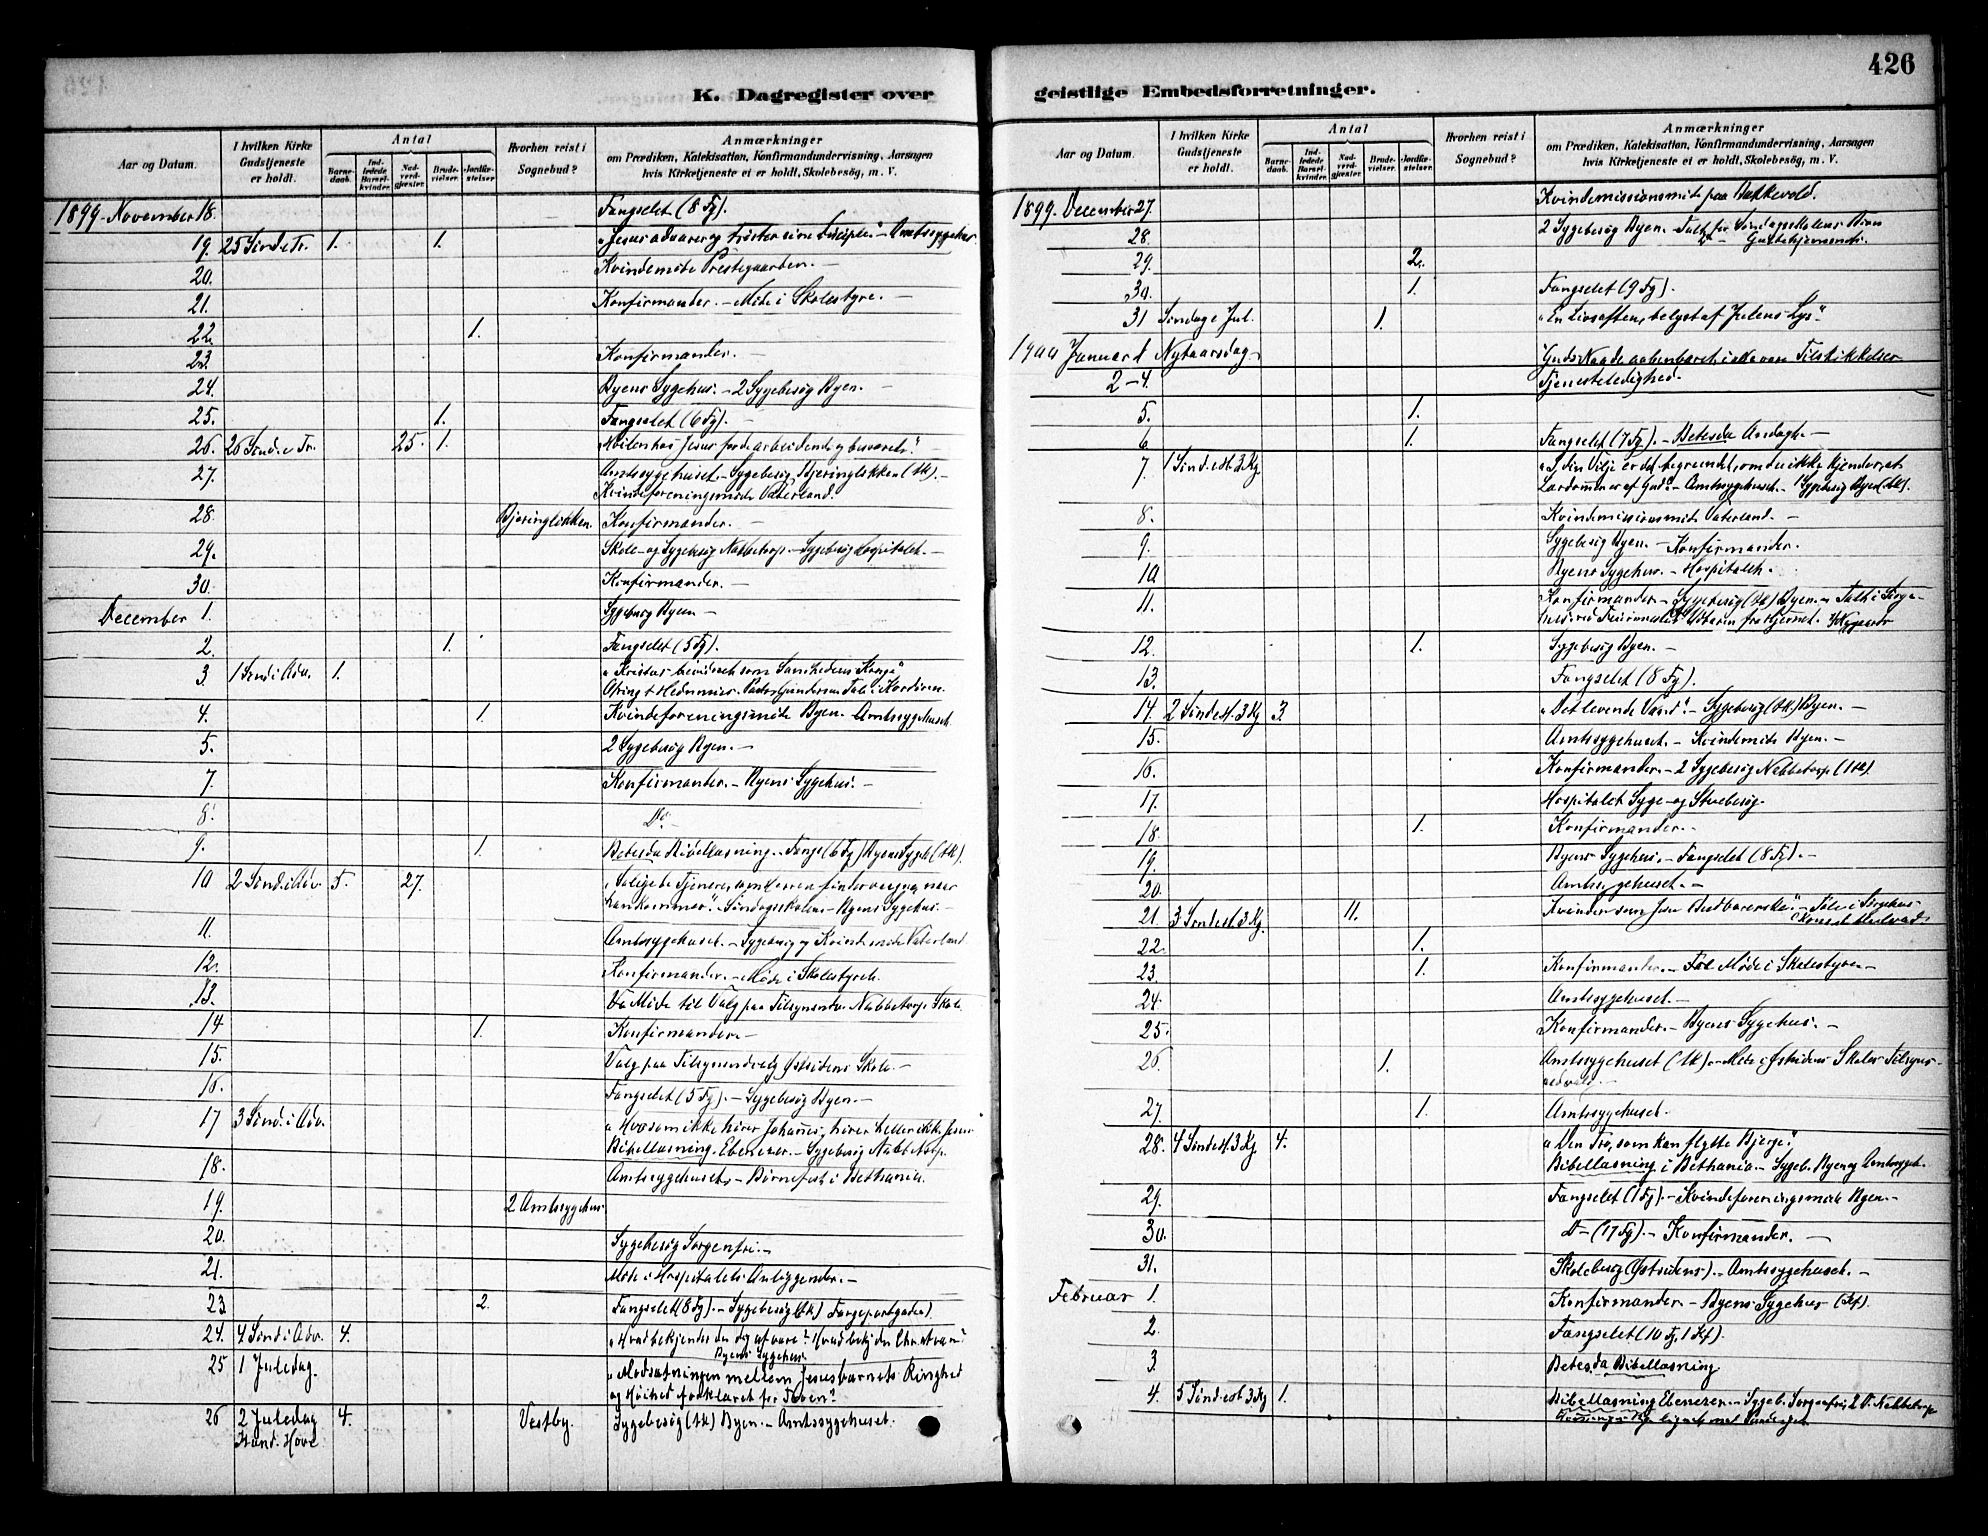 426
K. Dagregister over
geistlige Embedsforretninger.
Aar og Datum.
I hvilken Kirke Gudstjeneste er holdt.
Antal
Barnedaab.
Indledede Barselkvinder.
Nadverdgjæster.
Brudevielser.
Jordfæstelser.
Hvorhen reist i Sognebud?
Anmærkninger
om Prædiken, Katekisation, Konfirmandundervisning, Aarsagen
hvis Kirketjeneste ei er holdt, Skolebesög, m. V.
1899 November 18. Fængselet (8 Fg).
19. 25 Sønd e Tr. 1. 1. "Jesus advarer og trøster sine Disciple." - Amtssygehus
20. Kvindemøde Prestegaarden. -
21. Konfirmander. - Møde i Skolestyre. -
22. 1.
23. Konfirmander. -
24. Byens Sygehus. - 2 Sygebesøg Byen. -
25. 1. Fængselet (6 Fg). -
26. 26 Sønd e Tr. 25. 1.
27. Amtssygehuset. - Sygebesøg Bjeringløkken (Ak). -
Kvindeforeningsmøde Vaterland.
28. Bjeringløkken. Konfirmander. -
29. Skole- og Sygebesøg Nabbetorp. - Sygebesøg Hospitalet. -
30. Konfirmander. -
December 1. Sygebesøg Byen -
2. 1. Fængselet (5 Fg).
3. 1 Sønd i Adv. 1. "Kristus bevidnet som Sandhedens Konge"
4. 1. Kvindeforeningsmøde Byen. Amtssygehuset
5. 2 Sygebesøg Byen. -
7. Konfirmander. - Byens Sygehus. -
8. Do -
9. 1. Betesda Bibellæsning. - Fængs (6 Fg) Byens Sygeh (Ak).
10 2 Sønd. i Adv. 5. 27. "Salige de Tjenere, som Herren finder vaagne, naar
han kommer". - Søndagsskolen - Byens Sygehus. -
11. Amtssygehuset. - Sygebesøg og Kvindemøde Vaterland
12. Konfirmander. - Møde i Skolestyret. -
13. Møde til Valg paa Tilsynsudv. Nabbetorp Skole
14 1. Konfirmander. -
15. Valg paa Tilsynsudvalg Østsidens Skole. -
16. Fængselet (5 Fg). - Sygebesøg Byen. -
17 3 Sønd. i Adv. "Hvo som ikke hører Johannes, hører heller ikke Jesus
Bibellæsning. Ebenezer. - Sygebesøg Nabbetorp.
18. Amtssygehuset. - Børnefest i Bethania.
19. 2 Amtssygehus.
20. Sygebesøg Sorgenfri. -
21. Møde i Hospitalets Anliggender. -
23 2. Fængselet (8 Fg). - Sygebesøg (Ak) Færgeportgaden).
24. 4 Sønd i Adv. 4.
Byens Sygehus
25 1 Juledag. "Modsætningen mellem Jesusbarnets Ringhed
og Høihed forklaret for Troen".
26 2 Juledag 4. Vestby. Sygebesøg (Ak) Byen. - Amtssygehuset.
Aar og Datum.
I hvilken Kirke Gudstjeneste er holdt.
Antal
Barnedaab.
Indledede Barselkvinder.
Nadverdgjæster.
Brudevielser.
Jordfæstelser.
Hvorhen reist i Sognebud?
Anmærkninger
om Prædiken, Katekisation, Konfirmandundervisning, Aarsagen
hvis Kirketjeneste ei er holdt, Skolebesög, m. V.
1899. December 27. Kvindemissionsmøde paa Bakkevold.
28. 2 Sygebesøg Byen. - Juletræ for Søndagsskolens Børn
29. 2.
30. 1. Fængselet (9 Fg).
31 Søndag e Jul. 1. "En Livsaften, belyst af Julens Lys".
1900 Januar 1 Nytaarsdag "Guds Naade aabenbaret i alle vore Tilskikkelser
2-4. Tjenesteledighed.
5. 1.
6 1. Fængselet (7 Fg). - Betesda Andagt. -
7. 1 Sønd e H. 3 Kg Lærdommen er af Gud". - Amtssygehuset. - Sygebesøg Byen (Ak).
8. Kvindemissionsmøde Vaterland. -
9. Sygebesøg Byen. - Konfirmander.
10 Byens Sygehus. - Hospitalet.
11. Konfirmander. - Sygebesøg (Ak) Byen. -
12. 1. Sygebesøg Byen. -
13. Fængselet (8 Fg).
14. 2 Sønd e H. 3 Kg 3. "Det levende Vand". - Sygebesøg (Ak) Byen. -
15. Amtssygehuset. - Kvindemøde Byen. -
16. Konfirmander. - 2 Sygebesøg Nabbetorp (1 Ak).
17. Hospitalet Syge- og Stuebesøg
18. 1. Konfirmander. -
19. Byens Sygehus. - Fængselet (8 Fg). -
20. Amtssygehuset. -
21. 3 Sønd e H. 3 Kg. 11.
22. 1.
23. 1. Konfirmander. - Møde i Skolestyre. -
24. Amtssygehuset. -
25. Konfirmander. - Byens Sygehus. -
26. 1. Amtssygehuset (Ak). - Møde i Østsidens Skoles Tilsyns-
udvalg. -
27. 1. Amtssygehuset.
28. 4 Sønd e H. 3 Kg. 4. "Den Tro, som kan flytte Bjerge".
Bibellæsning i Bethania. - Sygeb. Byen og Amtssygeh.
29. Fængselet (1 Fg). - Kvindeforeningsmøde Byen. -
30. D- (17 Fg). - Konfirmander. -
31. Skolebesøg (Østsidens). - Amtssygehuset. -
Februar 1. Konfirmander. - Byens Sygehus (Kf).
2. Fængselet (10 Fg, 1 Kf).
3. Betesda Bibellæsning.
4. 5 Sønd e H. 3 Kg 1. Bibellæsning Ebenezer. - Sygeb. Sorgenfri, 2 D. Nabbetorp